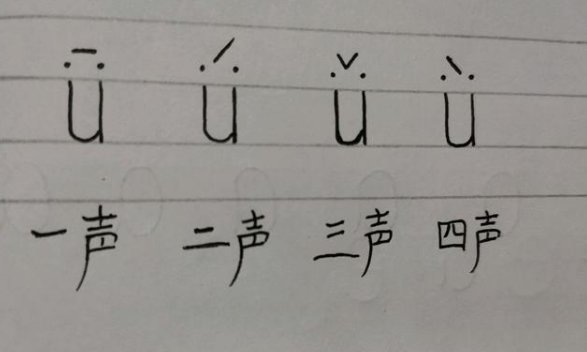 ǖ ǘ ǚ ǜ
一声 二声 三声 四声